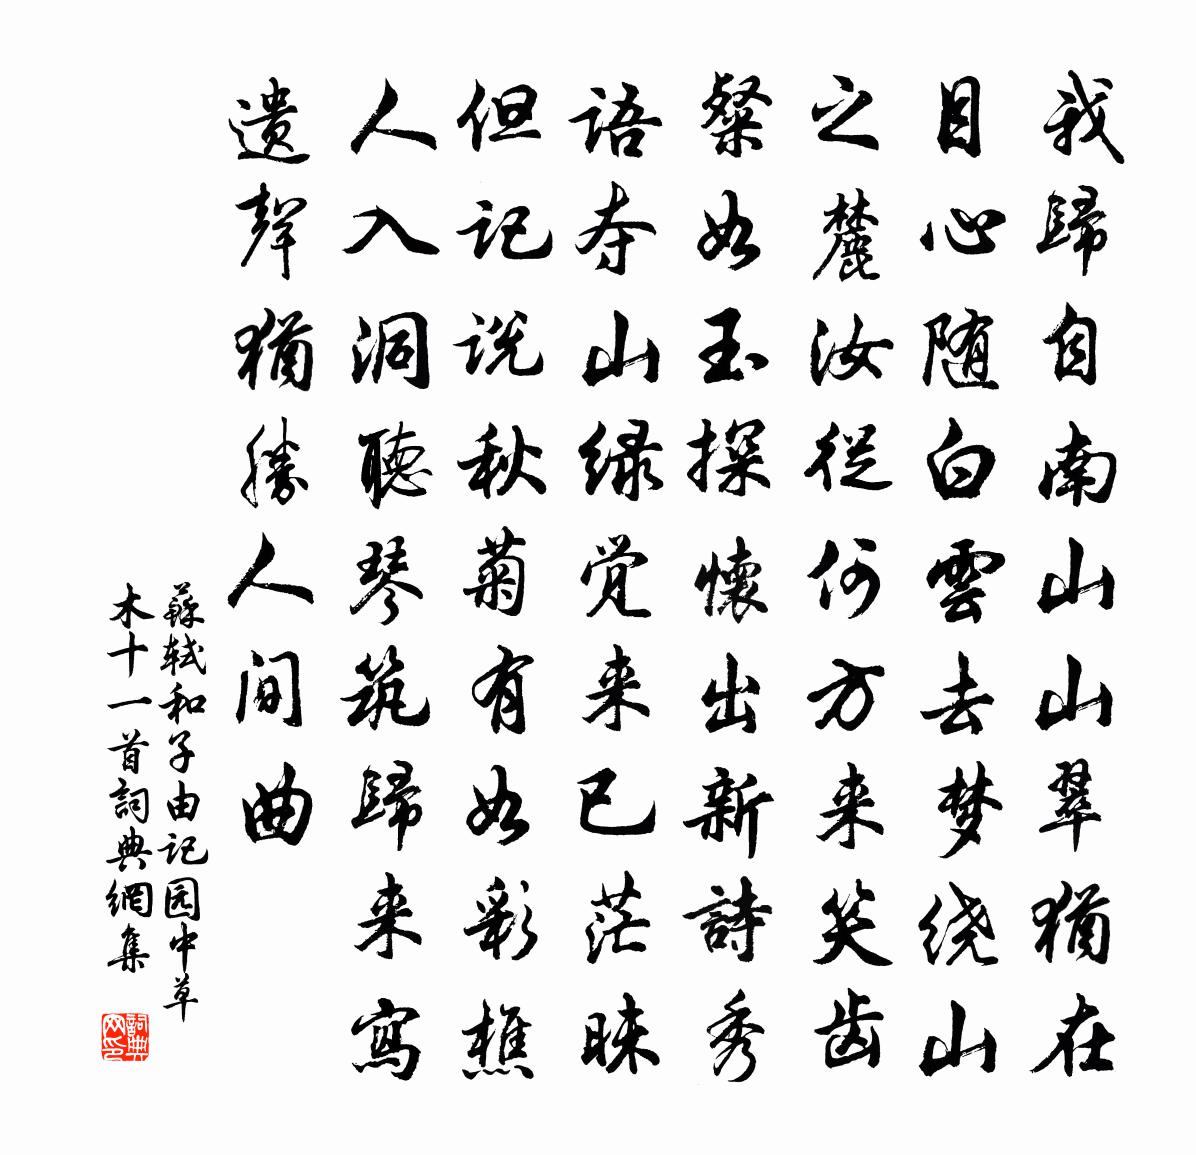 我歸自南山山翠猶在
目心随白雲去梦绕山
之麓汝從何方来笑齿
粲如玉探懷出新詩秀
语夺山绿觉来已茫昧
但记说秋菊有如彩樵
人入洞聽琴筑歸来寫
遗聲猶勝人间曲
蘇軾和子由记园中草
木十一首詞典網集
詞典网印